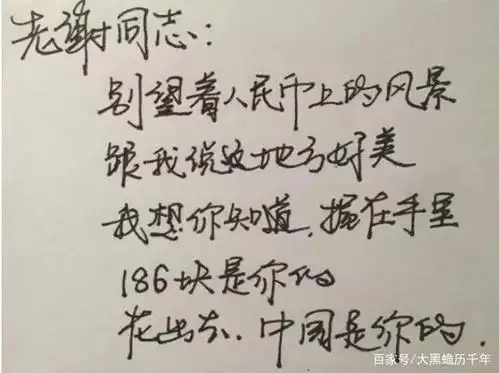 老谢同志：
别望着人民币上的风景
跟我说这地方好美
我想你知道，握在手里
186块是你的
花出去，中国是你的。
百家号/大黑蟾历千年